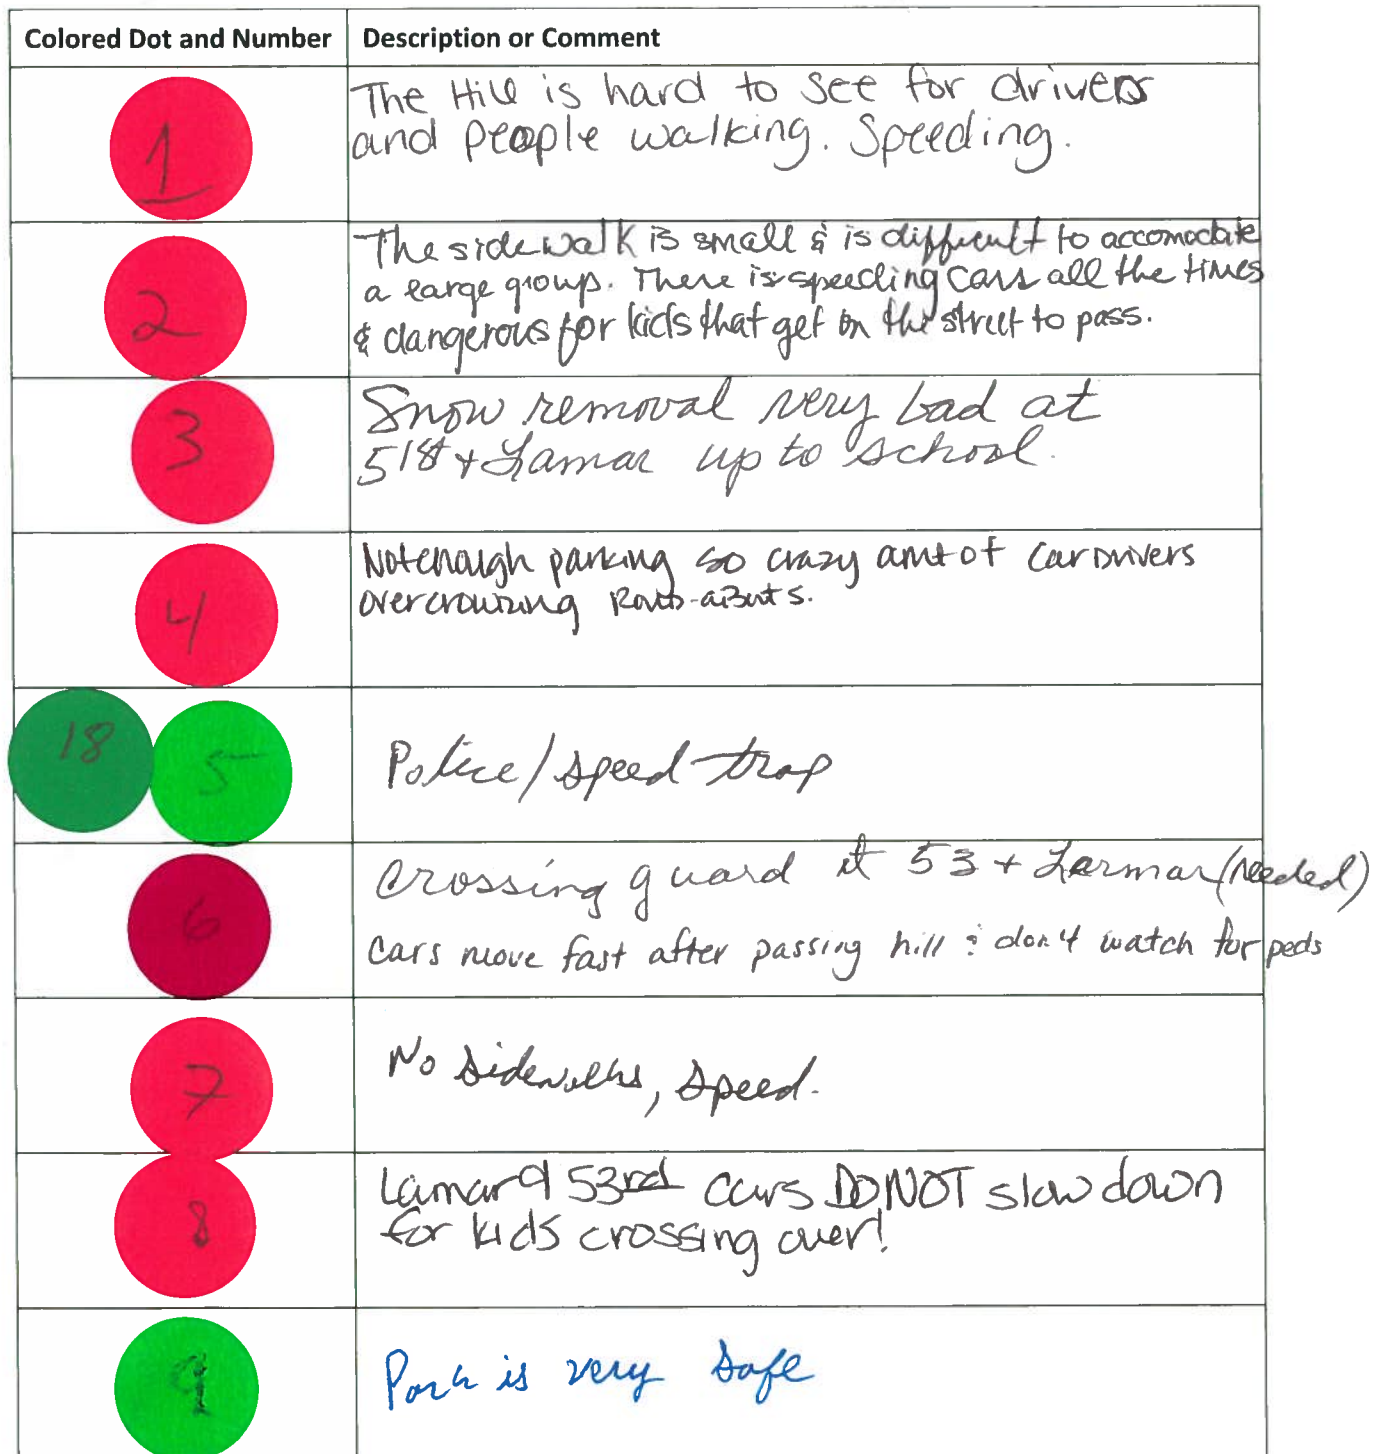 Colored Dot and Number Description or Comment
1 The Hill is hard to see for drivers
and people walking. Speeding.
2 The sidewalk is small & is difficult to accomodate
a large group. There is speeding cars all the times
& dangerous for kids that get on the street to pass.
3 Snow removal very bad at
51st + Lamar up to school.
4 Not enough parking so crazy amt of Car Drivers
overcrowding
18 5 Police/speed trap
6 Crossing guard at 53 + Larmar (needed)
Cars move fast after passing hill & don't watch for peds
7 No sidewalks, speed.
8 Lamar 53rd cars DO NOT slow down
for kids crossing over!
9 Park is very safe